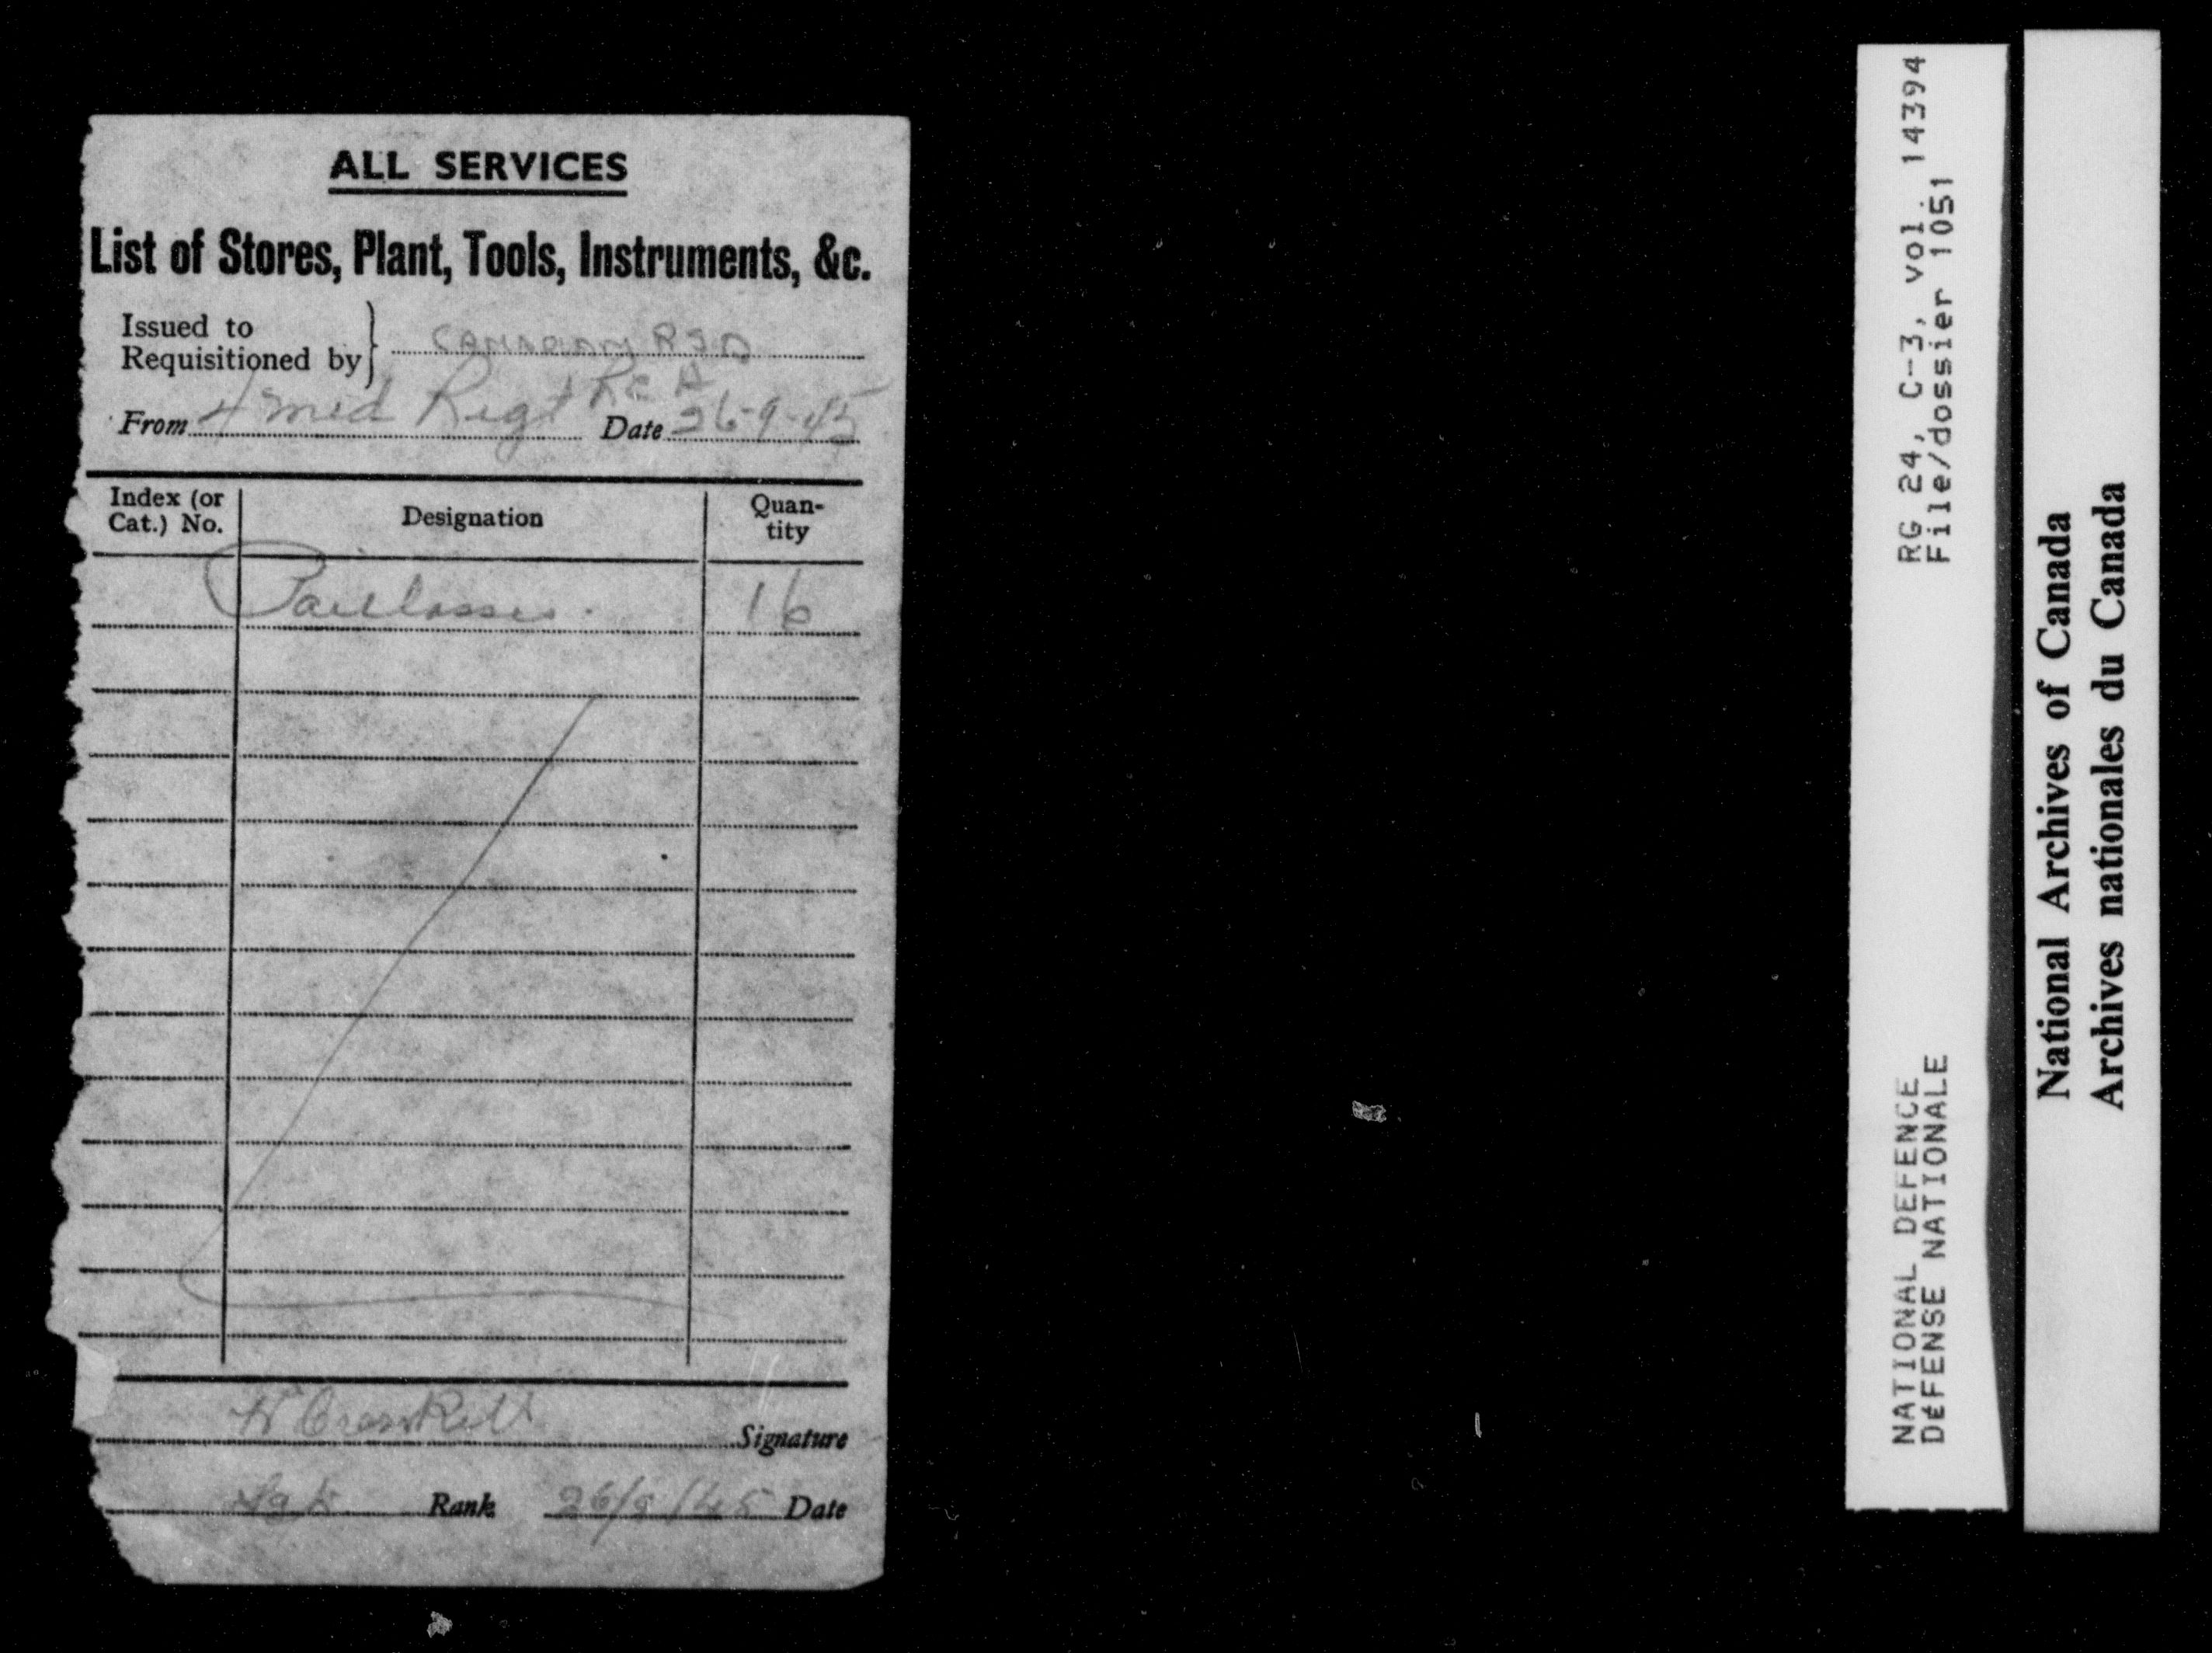 ALL SERVICES
List of Stores, Plant, Tools, Instruments, &c.
Issued to
Requisitioned by
4 Med Regt RCA
From Date 26-9-45
Index (or Cat.) No. Designation Quan-tity
Paillasses. 16
Signature
Rank 26/9/45 Date
RG 24, C-3, vol. 14394
File/dossier 1051
NATIONAL DEFENCE
DéFENSE NATIONALE
National Archives of Canada
Archives nationales du Canada